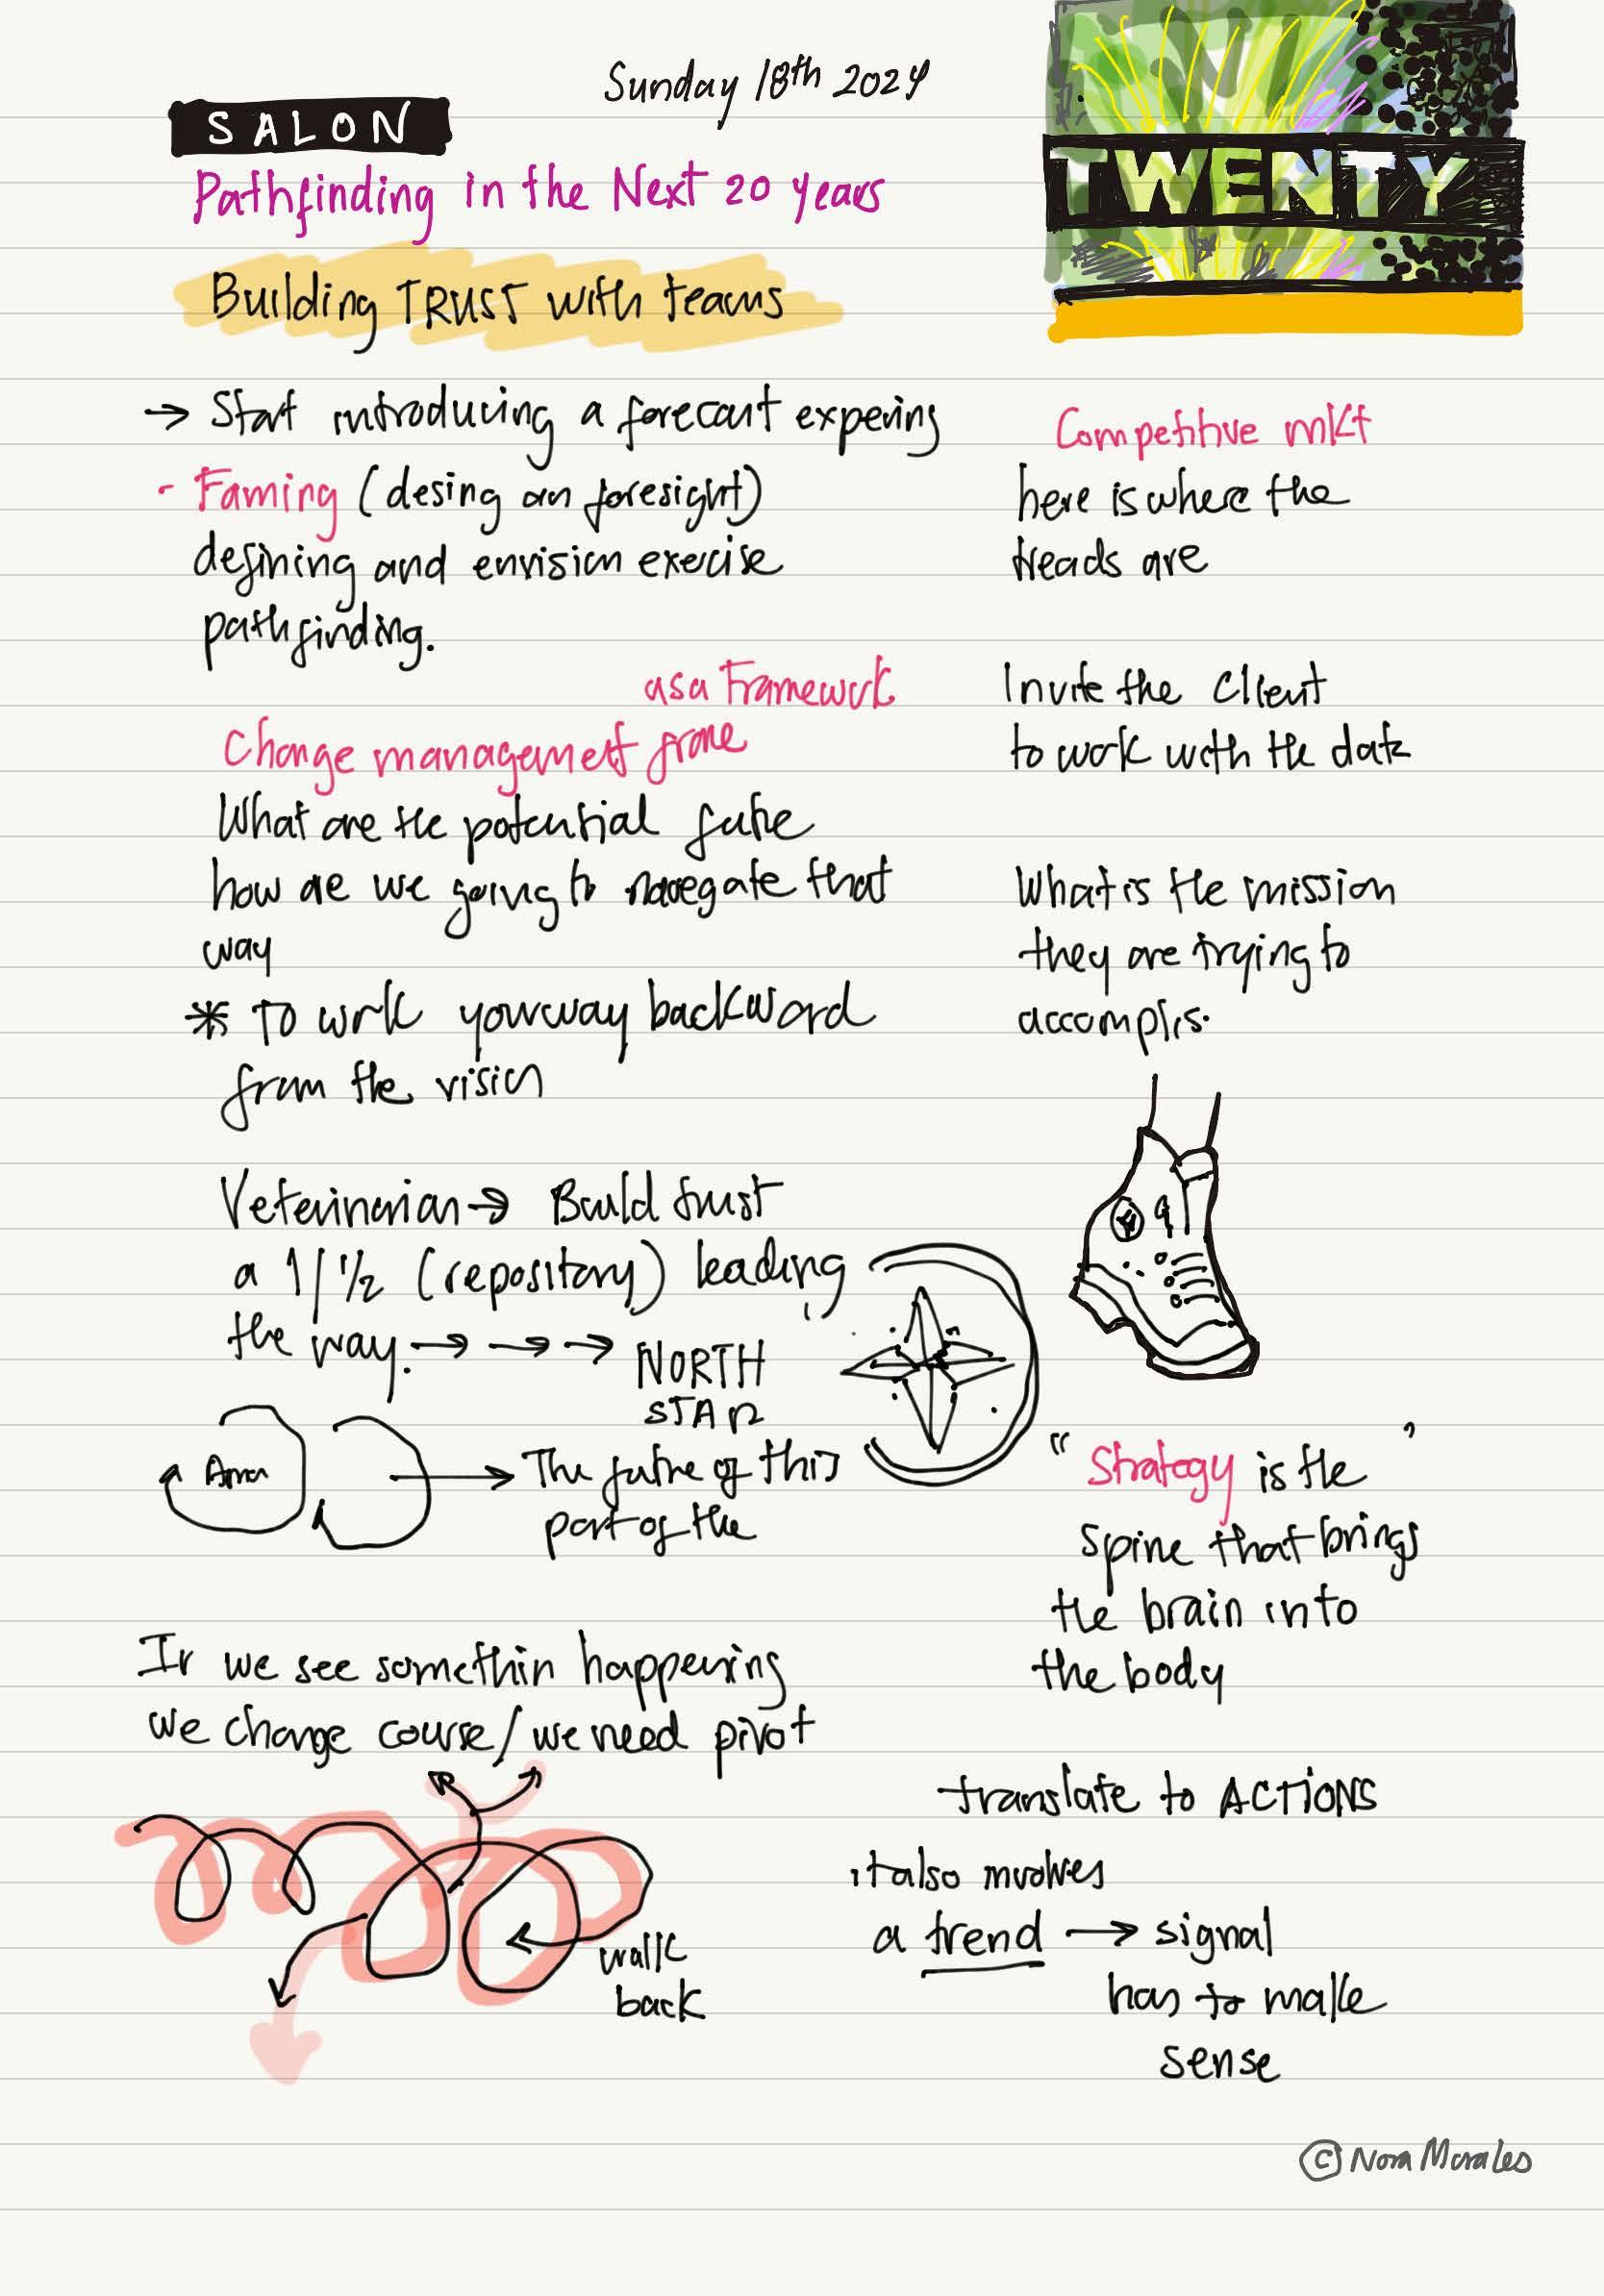 Sunday 18th 2024
SALON
TWENTY
Pathfinding in the Next 20 years
Building TRUST with teams
→ Start introducing a forecast expering
- Faming (desing an foresight)
defining and envision execise
pathfinding.
as a Framework
Change management frame
What are the potential future
how are we going to navegate that
way
* To work your way backward
from the vision
Veterinarian → Build trust
a 1/1½ (repository) leading
the way. → → → NORTH
STAR
→ The future of this
part of the
If we see somethin happening
we change course/we need pivot
walk
back
Competitive mkt
here is where the
treads are
Invite the Client
to work with the data
What is the mission
they are trying to
accomplis.
"Strategy is the"
spine that brings
the brain into
the body
translate to ACTIONS
it also involves
a trend → signal
has to make
sense
© Nora Morales